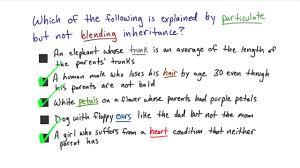 Which of the following is explained by particulate
but not blending inheritance?
An elephant whose trunk is an average of the length of
the parents' trunks
A human male who loses his hair by age 30 even though
his parents are not bald
White petals on a flower whose parents had purple petals
Dog with floppy ears like the dad but not the mom
A girl who suffers from a heart condition that neither
parent has